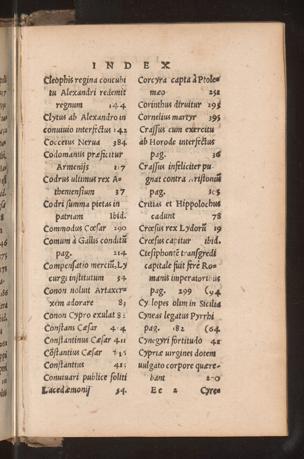 INDEX
Cleophis regina concubi
tu Alexandri redemit
regnum 144
Clytus ab Alexandro in
conuiuio interfectus 142
Cocceius Nerua 384
Codomanus præficitur
Armenijs
Codrus ultimus rex A-
theniensium 37
Codri summa pietas in
patriam Ibid.
Commodus Cæsar 290
Comum à Gallis conditū
pag. 214
Compensatio merciū, Ly
curgi institutum 54
Conon noluit Artaxer-
xem adorare
Conon Cypro exulat
Constans Cæsar
Constantinus Cæsar 411
Cōstantius Cæsar
Constantius
Conuiuari publice soliti
Lacedæmonij 54.
Corcyra capta à Ptole-
mæo 252
Corinthus diruitur 295
Cornelius martyr 395
Crassus cum exercitu
ab Horode interfectus
pag. 36
Crassus infeliciter pu-
gnat contra
pag.
Critias et Hippolochus
cadunt 78
Crœsus rex Lydorū 19
Crœsus capitur ibid.
Ctesiphonte transgredi
capitale fuit ferè Ro-
manis imperatoribus
pag. 299 (94
Cyclopes olim in Sicilia
Cyneas legatus Pyrrhi
pag. 182 (64
Cynegyri fortitudo 42
Cypriæ uirgines dotem
uulgato corpore quære-
bant
Ee 2 Cyre=